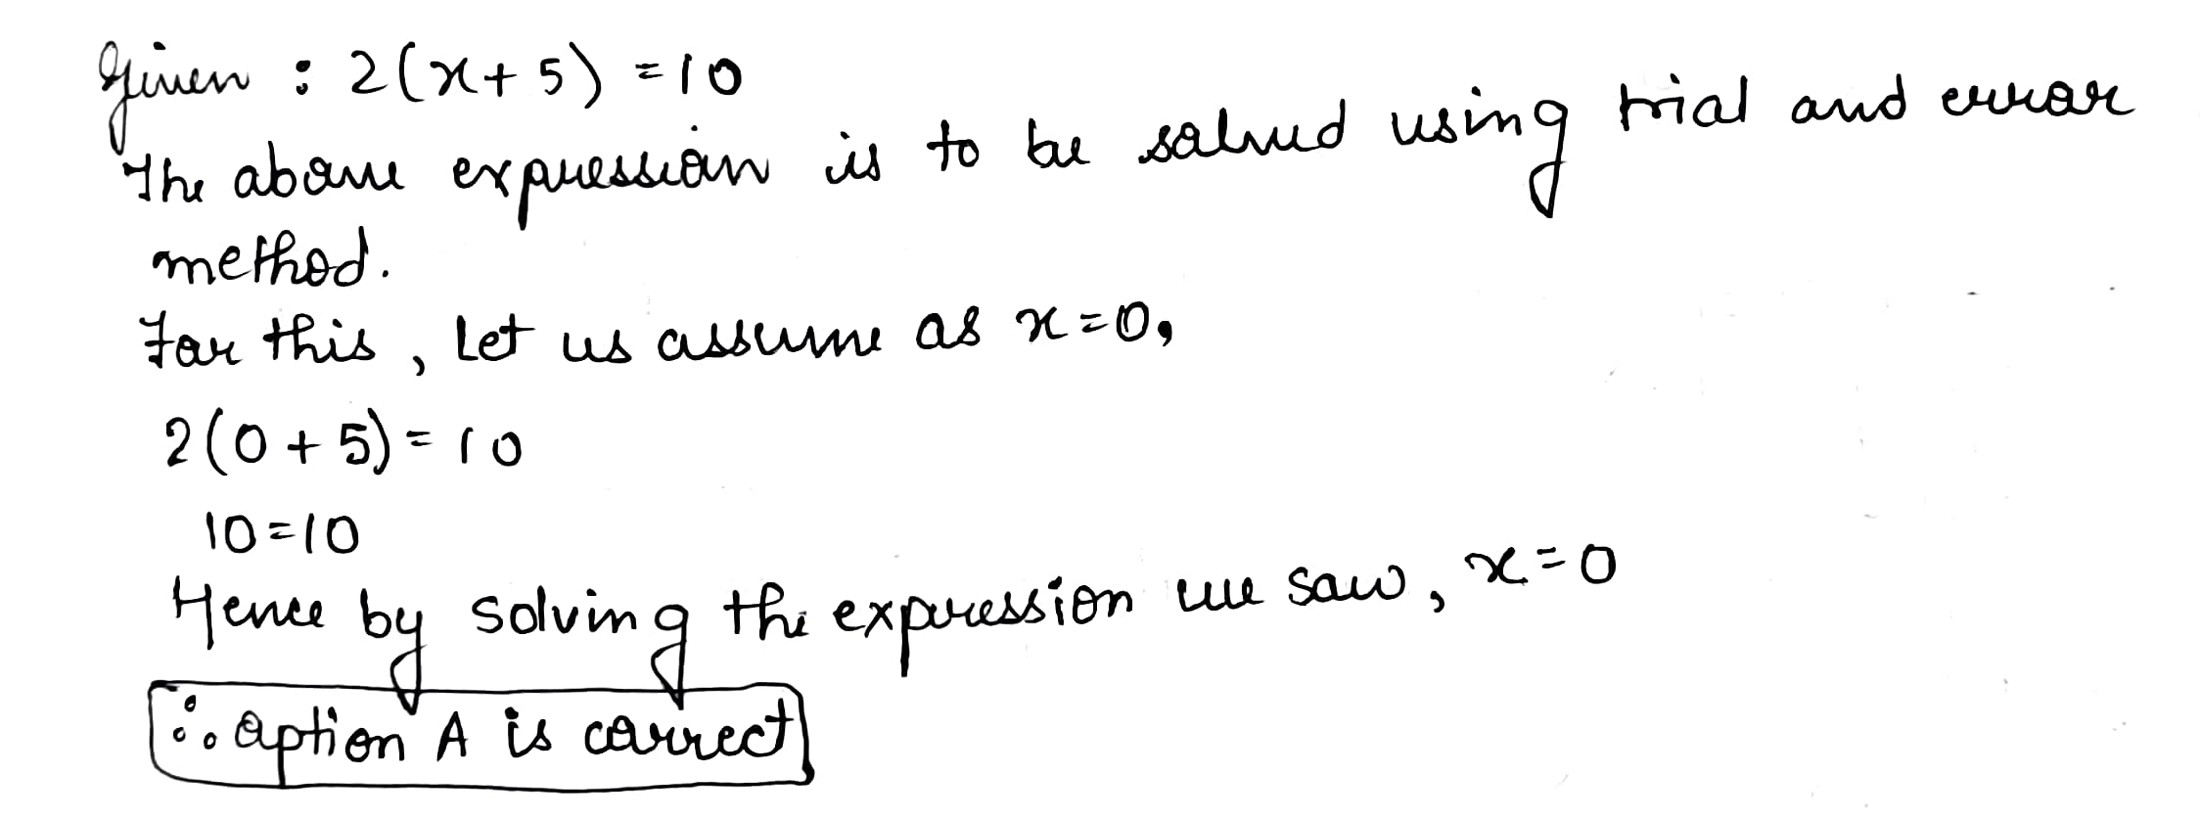 Given : 2(x+5) = 10
The above expression is to be solved using trial and error
method.
For this, Let us assume as x=0,
2(0+5)=10
10=10
Hence by solving the expression we saw, x=0
∴ option A is correct